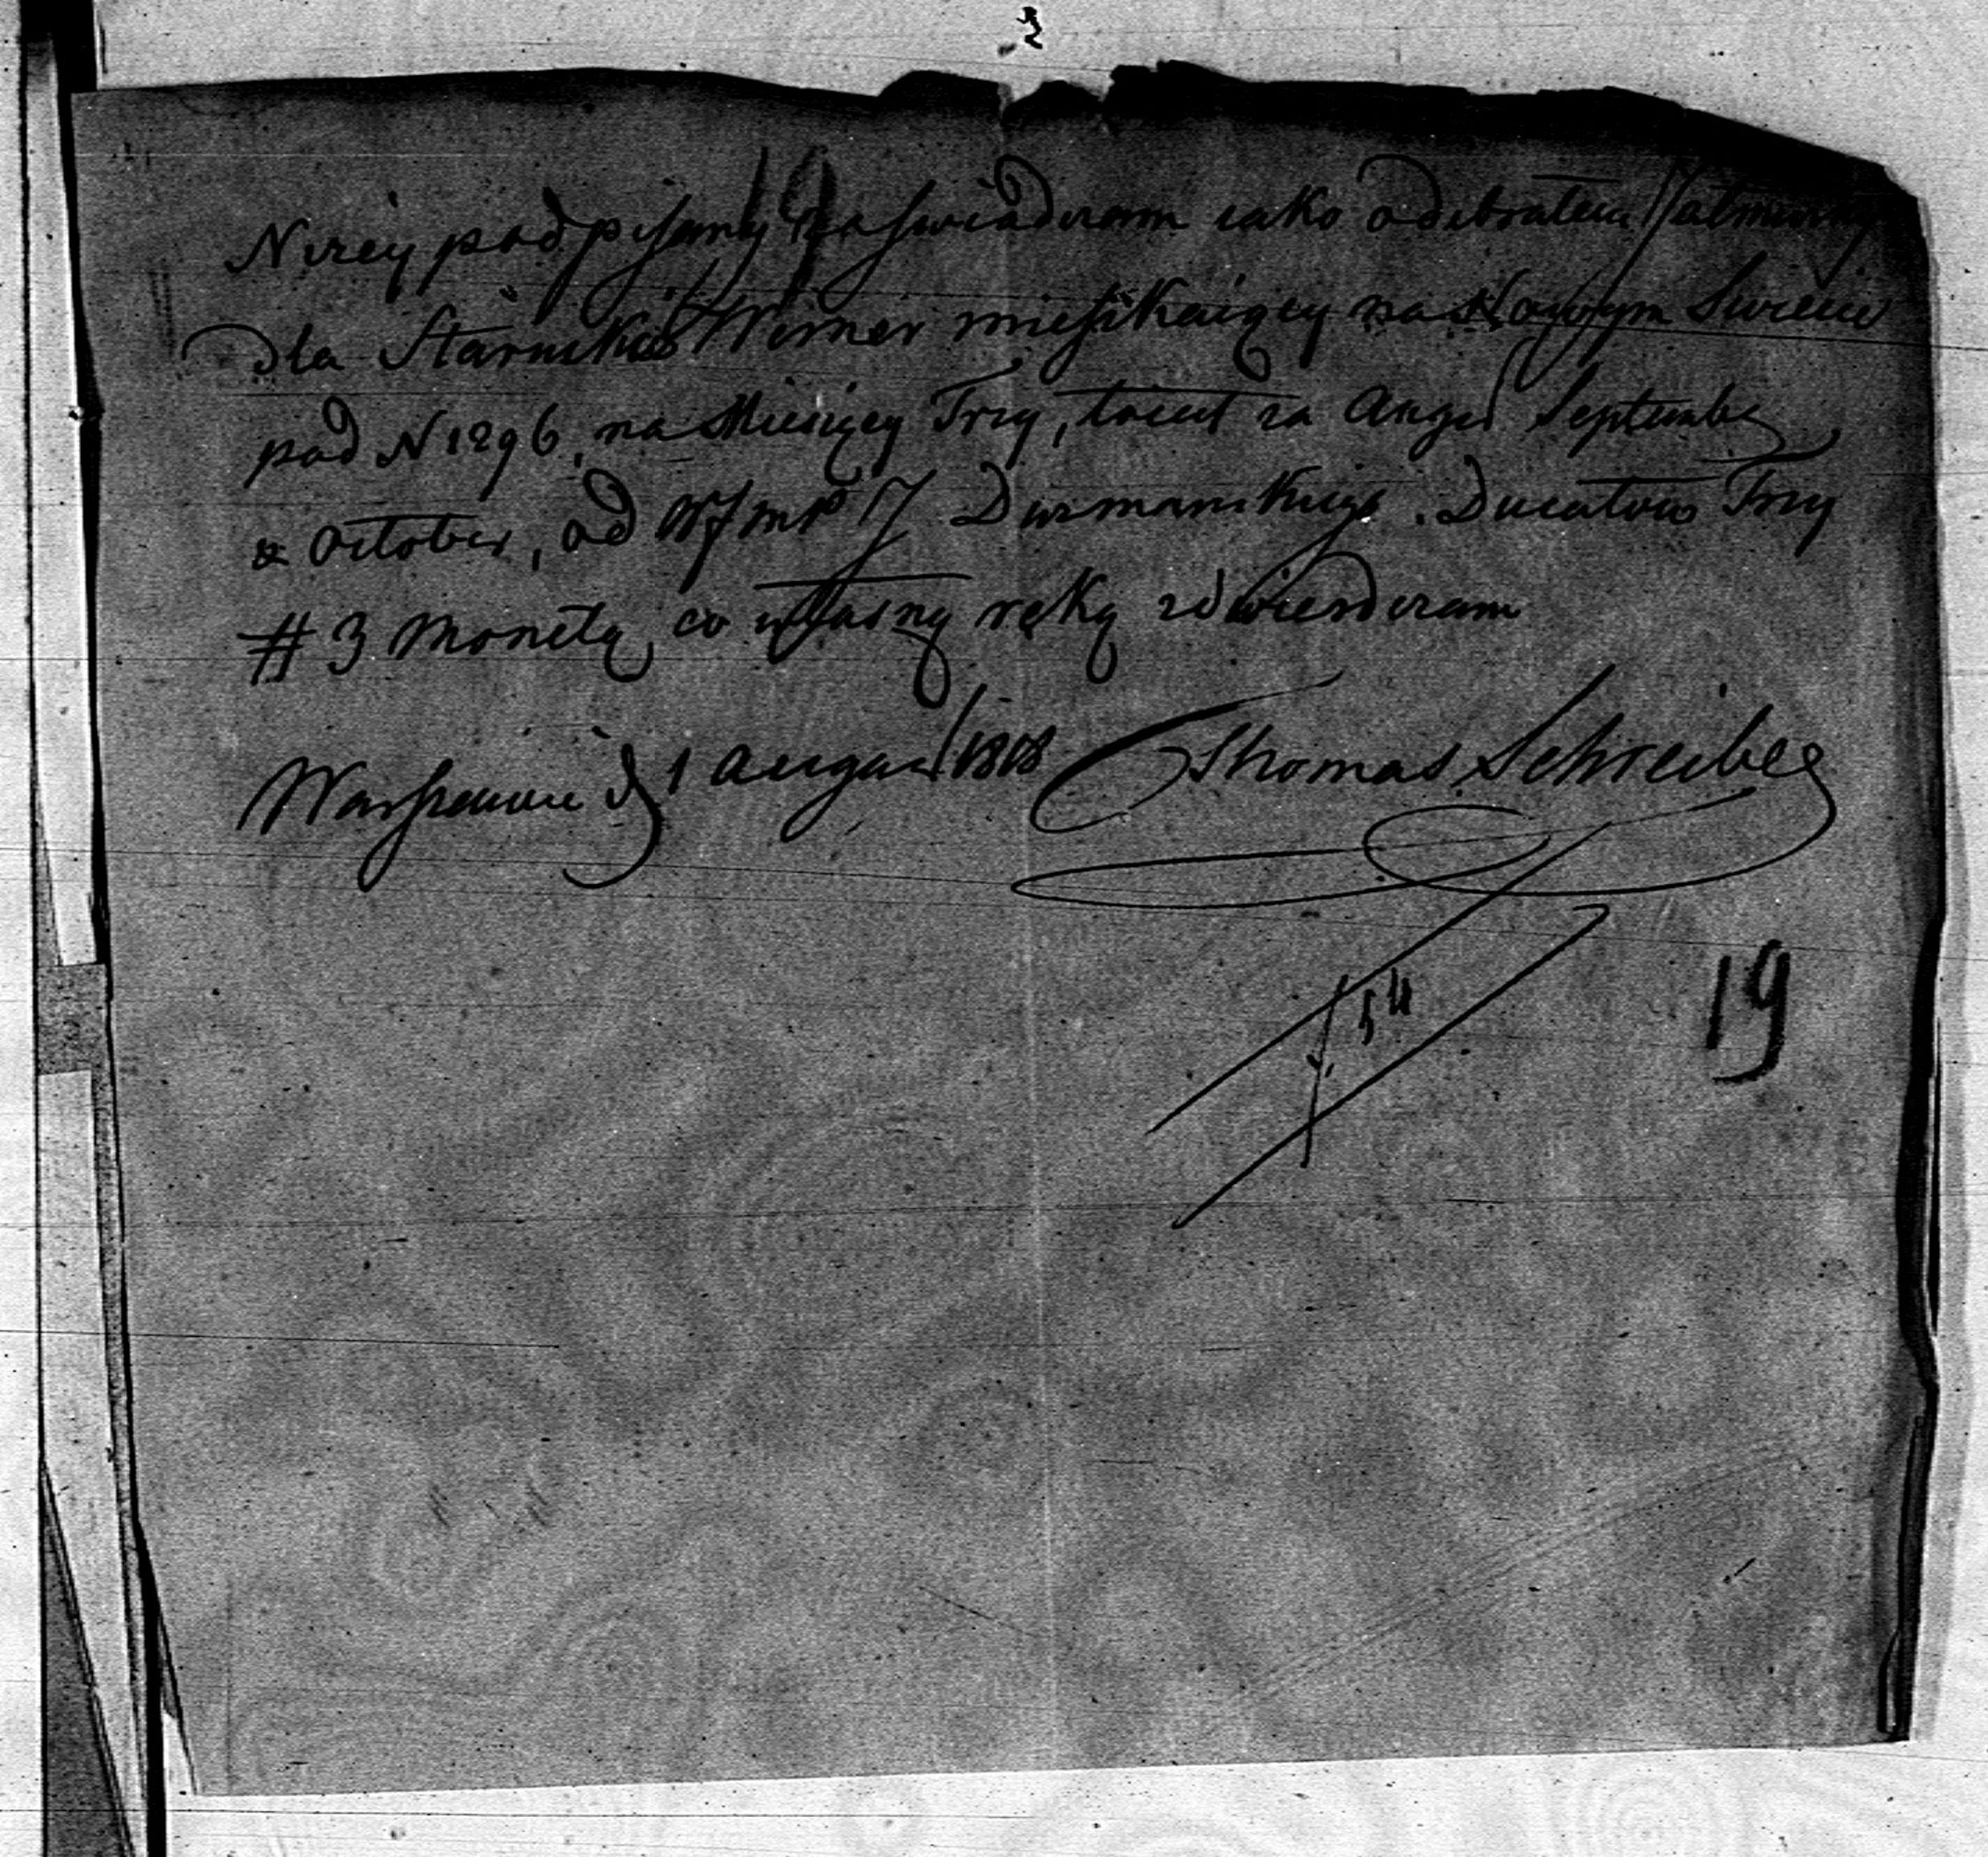 Nizey podpisany zaswiadczam iako odebratem Jatmużnę
dla Staruszki Werner mieszkaiącey na Nowym Swiecie
pod N 1296, na Miesięcy Trzy, toiest za August Septemb
& October, od WJmP J Duzmanskiego. Ducatow Trzy
# 3 Monetą, co własną ręką zdwierdczam
Warszawie d 1 August 1818 Thomas Schreiber
19